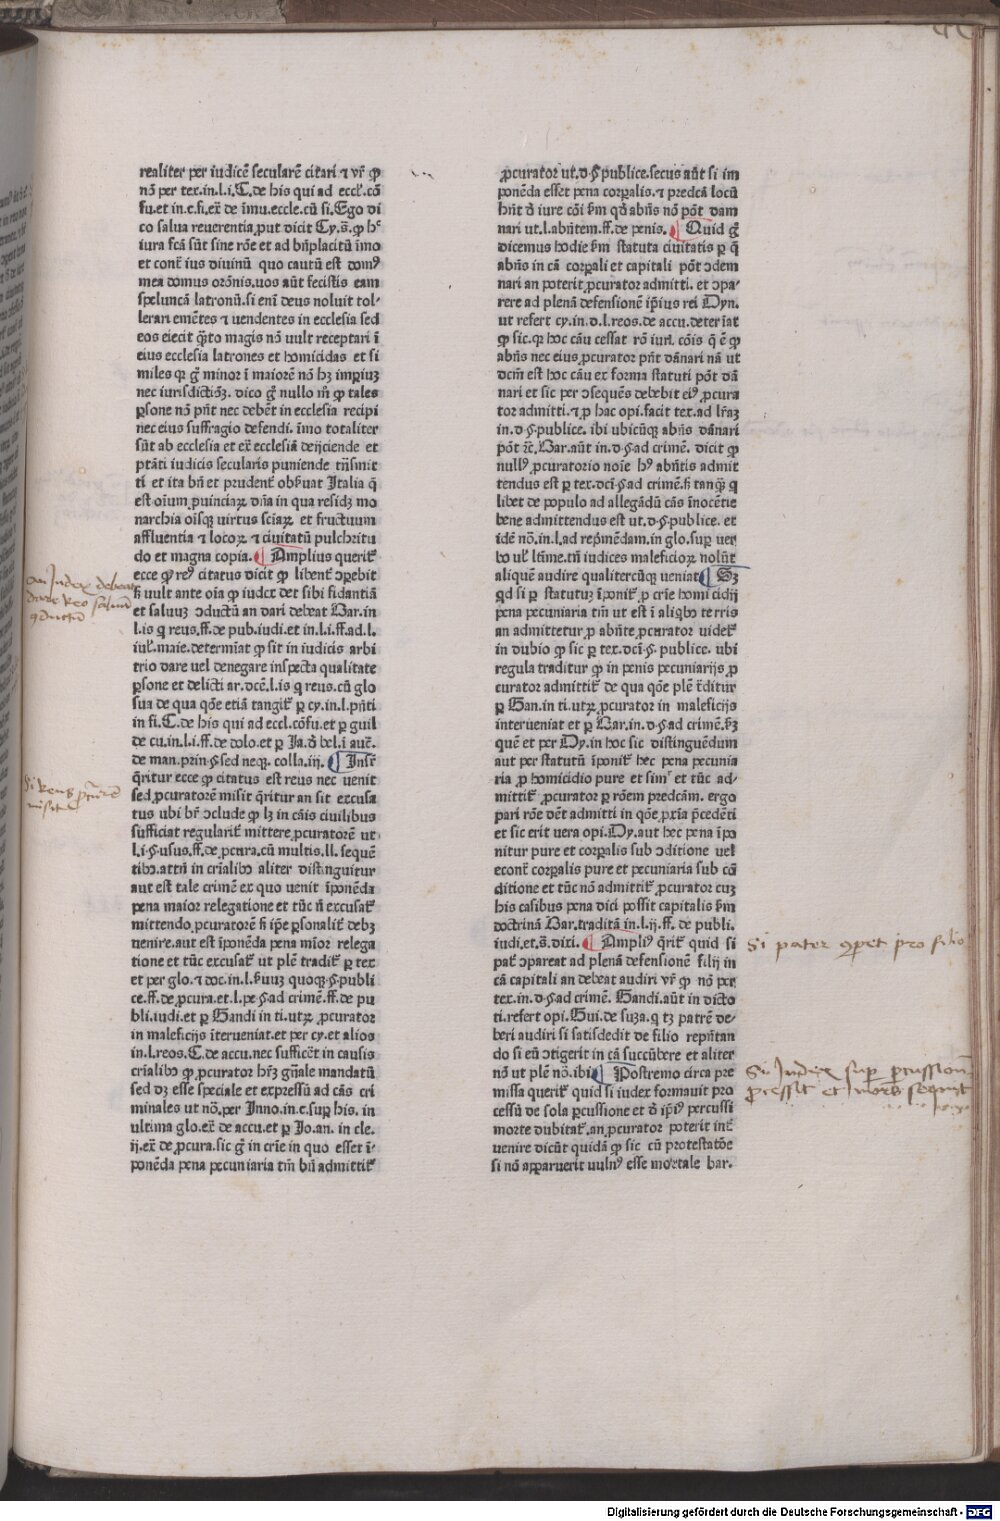 realiter per iudicē secularē citari ⁊ vr̄ ꝙ
nō per tex.in.l.i.C.de his qui ad eccl'.cō
fu.et in.c.fi.ex̄ de īmu.eccle.cū si.Ego di
co salua reuerentia put dicit Cy.s̄.ꝙ hᶜ
iura fcā sūt sine rōe et ad bn̄placitū īmo
et contᵉ ius diuinū quo cautū est domꝰ
mea domus orōnis.uos aūt fecistis eam
speluncā latronū.si enī deus noluit tol-
lerari emētes ⁊ uendentes in ecclesia sed
eos eiecit q̄to magis nō uult receptari ī
eius ecclesia latrones et homicidas et si
miles qr g̊ minor ī maiorē nō hꝫ imperiuꝫ
nec iurisdictiōꝫ. dico g̊ nullo m̊ ꝙ tales
ꝑsone nō pn̄t nec debēt in ecclesia recipi
nec eius suffragio defendi. īmo totaliter
sūt ab ecclesia et ex̄ ecclesiā deijciende et
ptāti iudicis secularis puniende trn̄smit
ti et ita bn̄ et prudentᵉ obẜuat Italia q̄
est oīum ꝓuinciaꝝ dn̄a in qua residꝫ mo
narchia oīsqꝫ virtus sciaꝝ et fructuum
affluentia ⁊ locoꝝ ⁊ ciuitatū pulchritu
do et magna copia. ¶ Amplius queritᵉ
ecce ꝙ reꝰ citatus dicit ꝙ libentᵉ ꝯꝑebit
ẜ uult ante oīa ꝙ iudex det sibi fidantiā
et saluuꝫ ꝯductū an dari debeat Bar.in
l.is q reus.ff.de pub.iudi.et in.l.i.ff.ad.l.
iul'.maie.determīat ꝙ sit in iudicis arbi
trio dare uel denegare inspecta qualitate
ꝑsone et delicti ar.dc̄e.l.is q reus.cū glo
sua de qua qōe etiā tangitᵉ ꝑ cy.in.l.pn̄ti
in fi.C.de his qui ad eccl.cōfu.et ꝑ guil
de cu.in.l.i.ff.de dolo.et ꝑ Ja.ð bel.ī auc̄.
de man.prin.§ sed neqꝫ. colla.iij. ¶ Insᵉ
q̄ritur ecce ꝙ citatus est reus nec uenit
sed ꝓcuratorē misit q̄ritur an sit excusa
tus ubi br̄ ꝯclude ꝙ lꝫ in cāis ciuilibus
sufficiat regularitᵉ mittere ꝓcuratorē ut
l.i.§.usus.ff.de ꝓcura.cū multis.ll.sequē
tibꝯ.attn̄ in crīalibꝯ aliter distinguitur
aut est tale crimē ex quo uenit īponēda
pena maior relegatione et tūc n̄ excusatᵉ
mittendo ꝓcuratorē ẜ ip̄e ꝑsonalitᵉ debꝫ
uenire.aut est īponēda pena mīor relega
tione et tūc excusatᵉ ut plē traditᵉ ꝑ tex
et per glo.⁊ doc.in.l.ẜuuꝫ quoqꝫ.§ publi
ce.ff.de ꝓcura.et.l.pe.§ ad crimē.ff.de pu
bli.iudi.et ꝑ Gandi in ti.utꝝ ꝓcurator
in maleficijs īterueniat.et per cy.et alios
in.l.reos.C.de accu.nec sufficēt in causis
crīalibꝯ ꝙ ꝓcurator hr̄ꝫ gn̄ale mandatū
sed dꝫ esse speciale et expressū ad cās cri
minales ut nō.per Inno.in.c.suꝑ his. in
ultima glo.ex̄ de accu.et ꝑ Jo.an. in cle.
ij.ex̄ de ꝓcura.sic g̊ in crīe in quo esset ī-
ponēda pena pecuniaria tm̄ bn̄ admittitᵉ
ꝓcurator ut.d.§ publice.secus aūt si im
ponēda esset pena corꝑalis.⁊ predcā locū
hn̄t ð iure cōi ẜm qð abn̄s nō pōt dam
nari ut.l.abn̄tem.ff.de penis. ¶ Quid g̊
dicemus hodie ẜm statuta ciuitatis ꝑ q̄
abn̄s in cā corꝑali et capitali pōt ꝯdem
nari an poterit ꝓcurator admitti. et ꝯpa-
rere ad plenā defensionē ip̄ius rei Dyn.
ut refert cy.in.d.l.reos.de accu.determīat
ꝙ sic.qꝫ hoc cāu cessat rō iur̄. cōis q̄ ē ꝙ
abn̄s nec eius ꝓcurator pn̄t dānari nā ut
dc̄m est hoc cāu ex forma statuti pōt dā
nari et sic per ꝯsequēs debebit eiꝰ ꝓcura
tor admitti.⁊ ꝓ hac opi.facit tex.ad lr̄aꝫ
in.d.§ publice. ibi ubicūqꝫ abn̄s dānari
pōt rc̄. Bar.aūt in.d.§ ad crimē. dicit ꝙ
nullꝰ ꝓcuratorio noīe hꝰ abn̄tis admit
tendus est ꝑ tex.dcī.§ ad crimē.ẜ tanqꝫ q
libet de populo ad allegādū cās īnocētie
bene admittendus est ut.d.§ publice. et
idē nō.in.l.ad rep̄mēdam.in glo.suꝑ uer
bo ul' l'time.tn̄ iudices maleficioꝝ nolūt
aliquē audire qualitercūqꝫ ueniat ¶ Sꝫ
qd si ꝑ statutuꝫ īponitᵉ ꝓ crīe homicidij
pena pecuniaria tm̄ ut est ī aliqbꝯ terris
an admittetur ꝓ abn̄te ꝓcurator uidetᵉ
in dubio ꝙ sic ꝑ tex.dcī.§. publice. ubi
regula traditur ꝙ in penis pecuniarijs ꝓ
curator admittitᵉ de qua qōe plē tᵃditur
ꝑ Gan.in ti.utꝝ ꝓcurator in maleficijs
interueniat et ꝑ Bar.in.d.§ ad crimē.ẜꝫ
quē et per Dy.in hoc sic distinguēdum
aut per statutū īponitᵉ hec pena pecunia
ria ꝓ homicidio pure et simᵉ et tūc ad-
mittitᵉ ꝓcurator ꝑ rōem predcām. ergo
pari rōe dēt admitti in qōe ꝓxīa p̄cedēti
et sic erit uera opi.Dy.aut hec pena īpo
nitur pure et corꝑalis sub ꝯditione uel
econtᵉ corꝑalis pure et pecuniaria sub cō
ditione et tūc nō admittitᵉ ꝓcurator cuꝫ
his casibus pena dici possit capitalis ẜm
doctrinā Bar.traditā in.l.ij.ff.de publi.
iudi.et.s̄.dixi. ¶ Ampliꝰ q̄ritᵉ quid si
patᵉ ꝯpareat ad plenā defensionē filij in
cā capitali an debeat audiri vr̄ ꝙ nō per
tex.in.d.§ ad crimē. Gandi.aūt in dicto
ti.refert opi.Gui.de suza.q tꝫ patrē de-
beri audiri si satisdedit de filio repn̄tan
do si eū ꝯtigerit in cā succūbere et aliter
nō ut plē nō.ibi ¶ Postremo circa pre
missa queritᵉ quid si iudex formauit pro
cessū de sola ꝑcussione et ð ip̄iꝰ percussi
morte dubitatᵉ.an ꝓcurator poterit intᵉ
uenire dicūt quidā ꝙ sic cū protestatōe
si nō apparuerit uulnꝰ esse mortale bar.
an Iudex debeat
dare Reo saluū
ꝯductū
Si Reus ꝓcurorē
misit
Si pater ꝯpet pro filio
Si Iudex super percussionē
processit et mors sequit
Digitalisierung gefördert durch die Deutsche Forschungsgemeinschaft - DFG